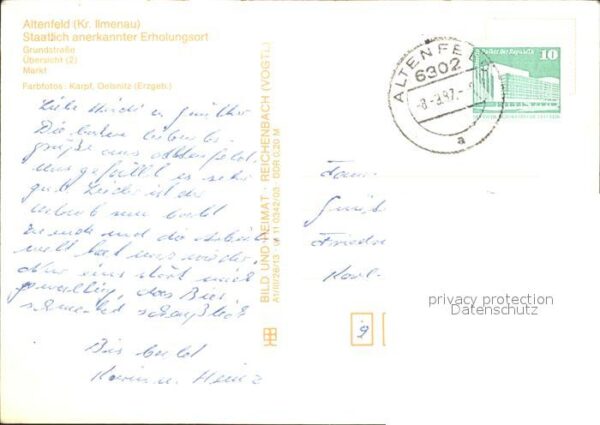 Altenfeld (Kr. Ilmenau)
Staatlich anerkannter Erholungsort
Grundstraße
Übersicht (2)
Markt
Farbfotos: Karpf, Oelsnitz (Erzgeb.)
Liebe Heidi u. Günther
Die besten Urlaubs-
grüße aus Altenfeld.
Uns gefällt es sehr
gut. Leider ist der
Urlaub nun bald
zu ende und die Arbeits
welt hat uns wieder.
Nur eins stört mich
gewaltig, das Bier
schmeckt scheußlich
Bis bald
Karin u. Heinz
BILD UND HEIMAT · REICHENBACH (VOGTL)
A1/III/26/13 11 0342/03 DDR 0,20 M
ALTENFELD
6302
a
Palast der Republik
10
Fam.
Karl-
privacy protection
Datenschutz